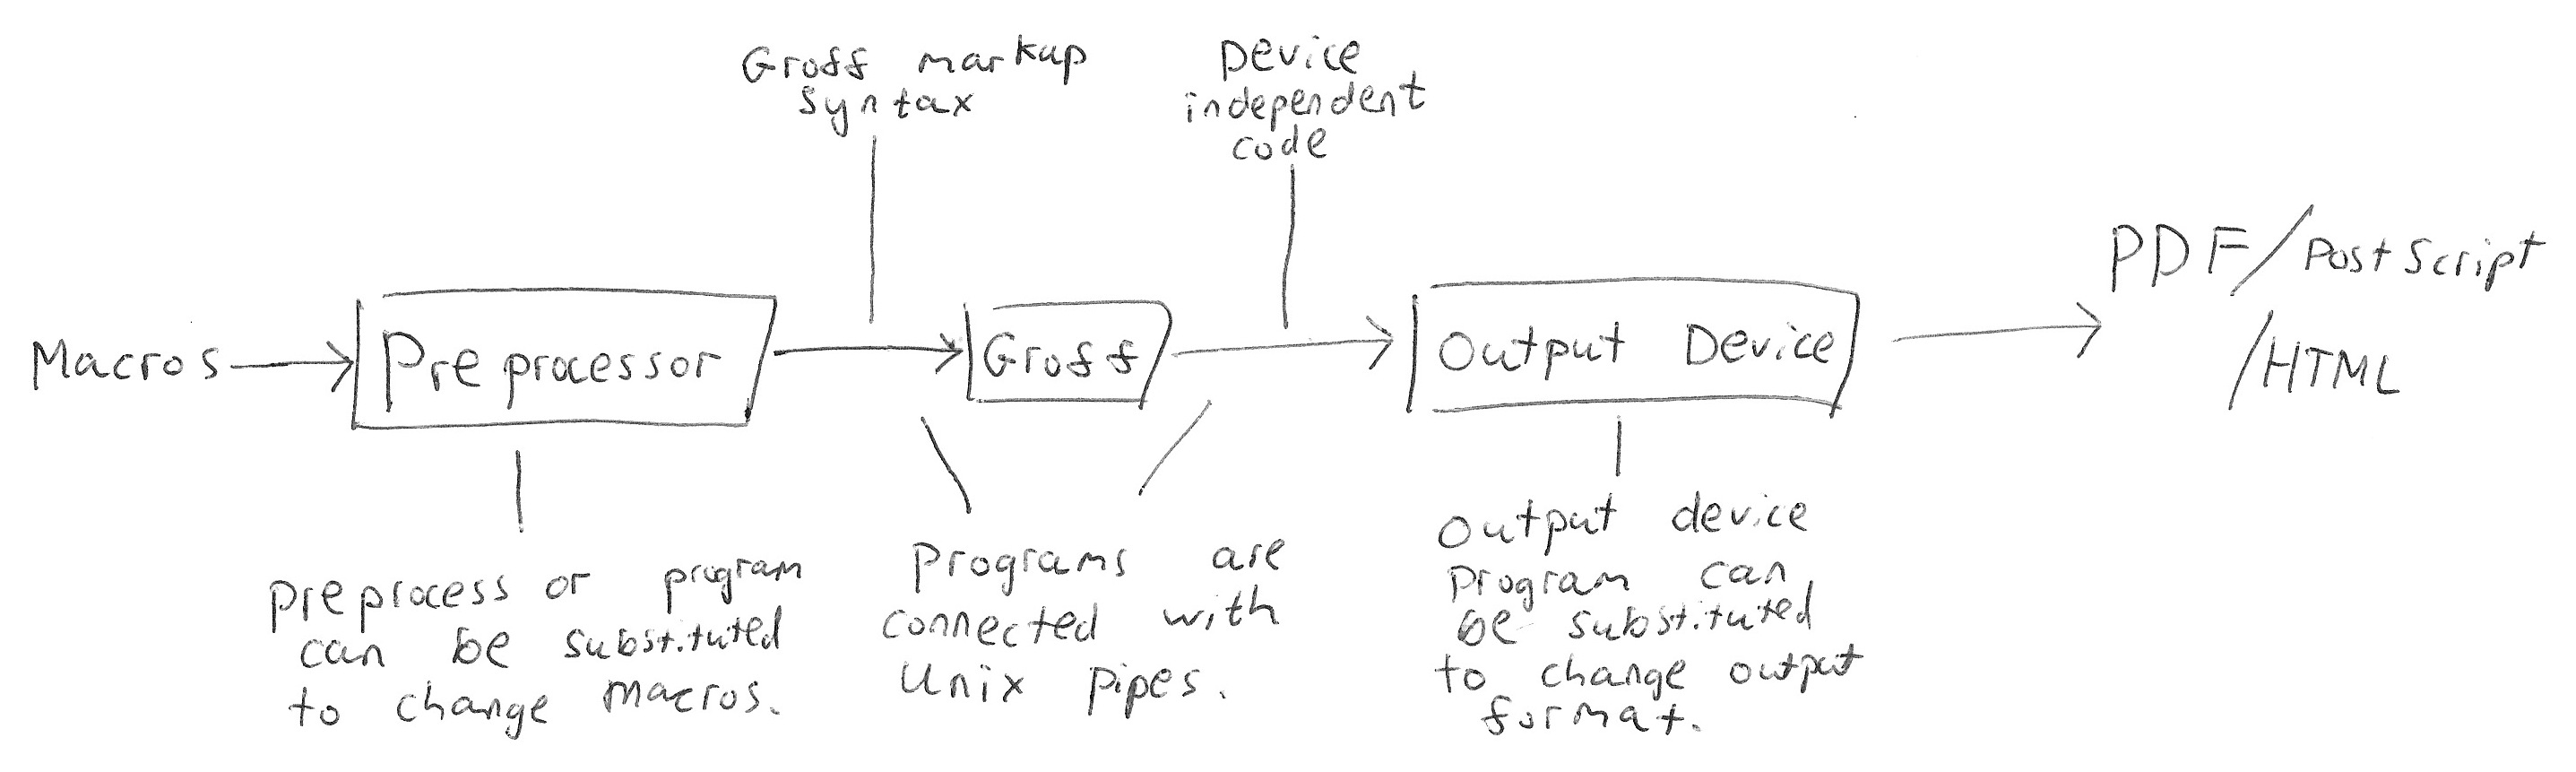 Groff markup
syntax
Device
independent
code
Macros
Preprocessor
Groff
Output Device
PDF/PostScript
/HTML
Preprocessor program
can be substituted
to change macros.
Programs are
connected with
Unix pipes.
Output device
program can
be substituted
to change output
format.